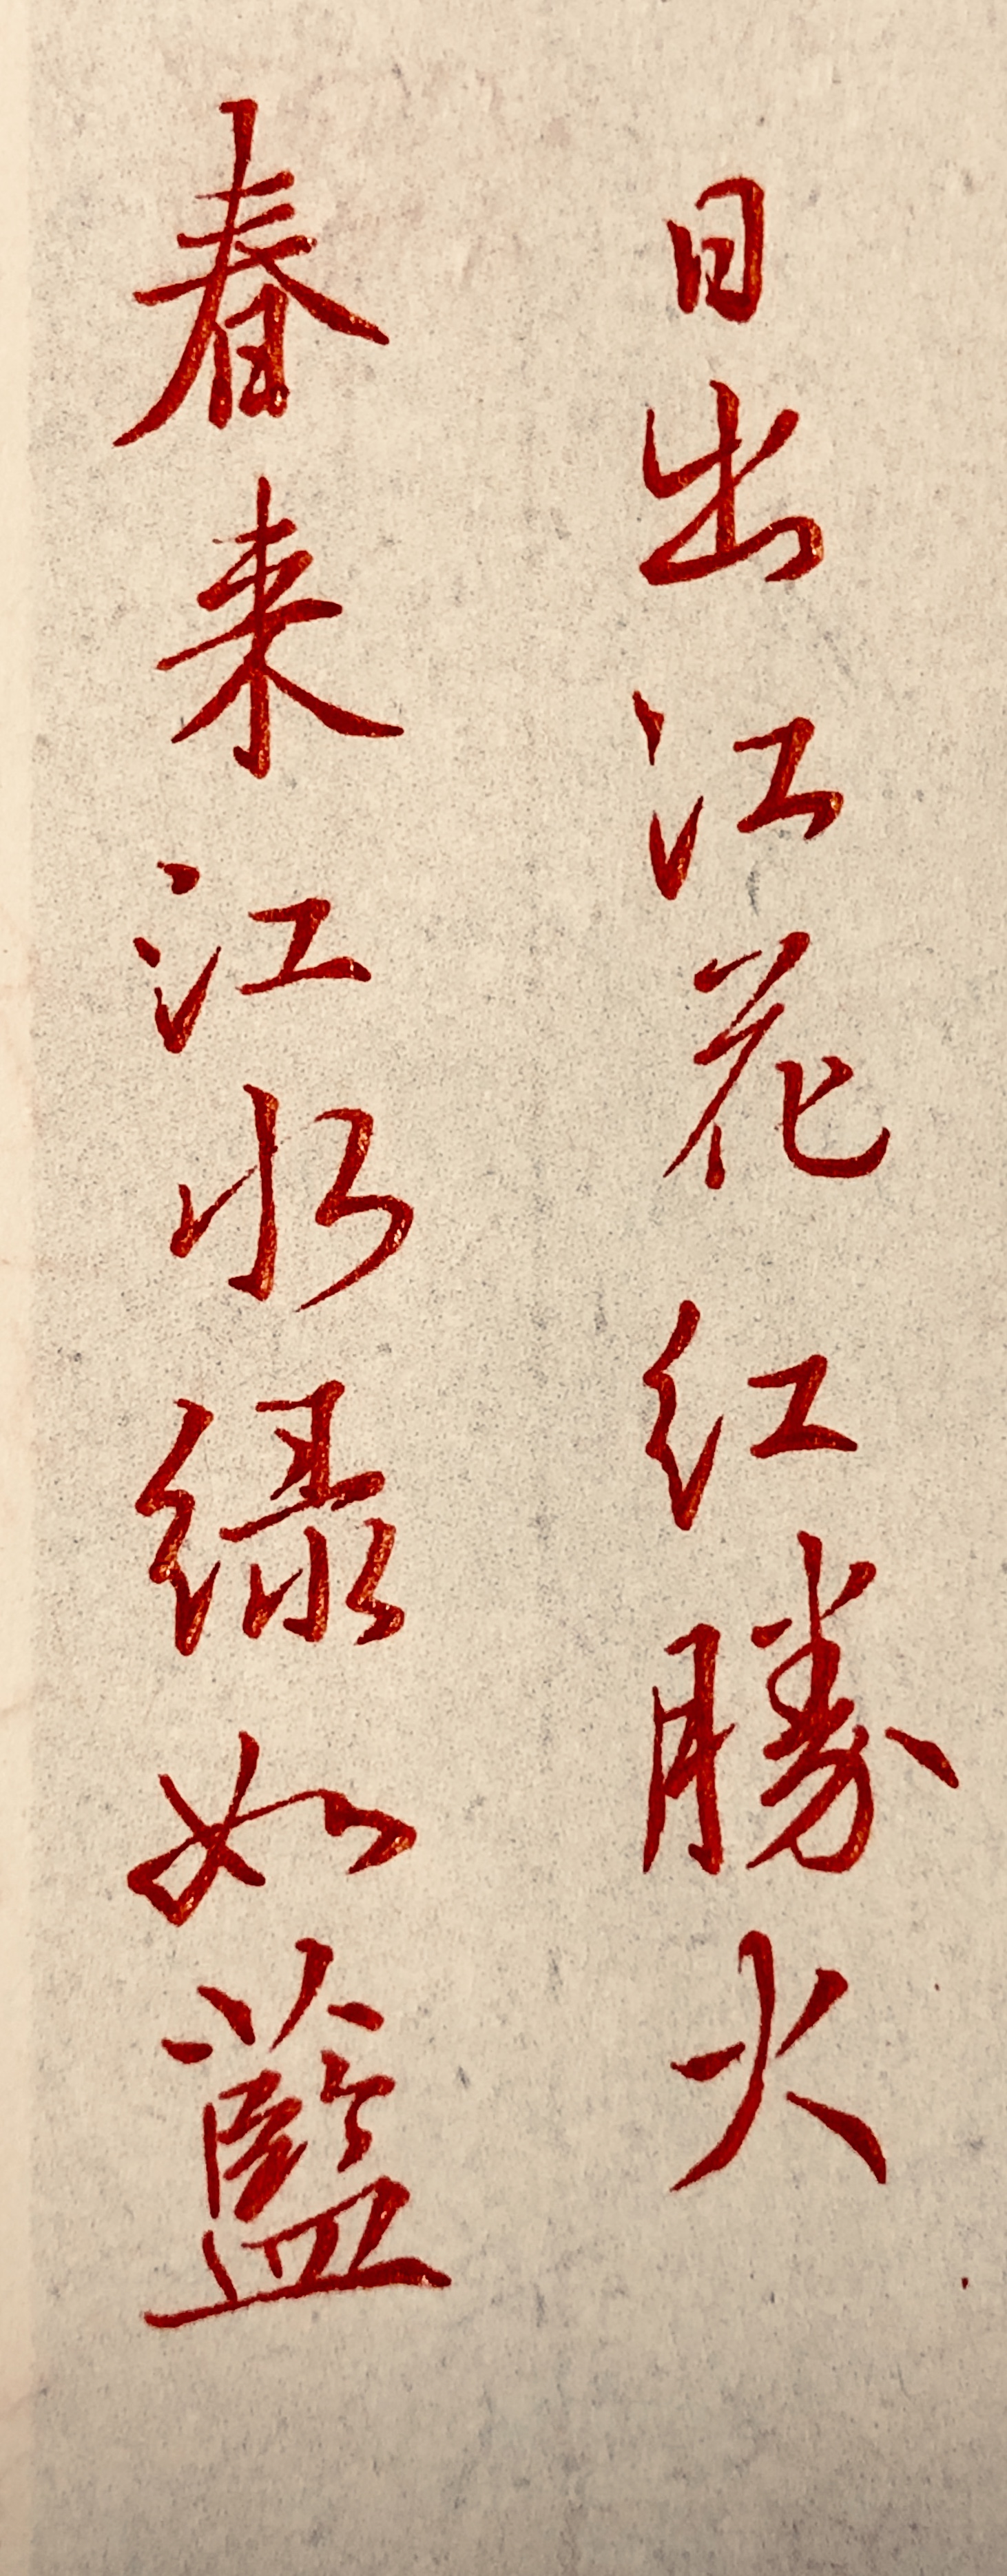 日出江花红勝火
春来江水绿如藍